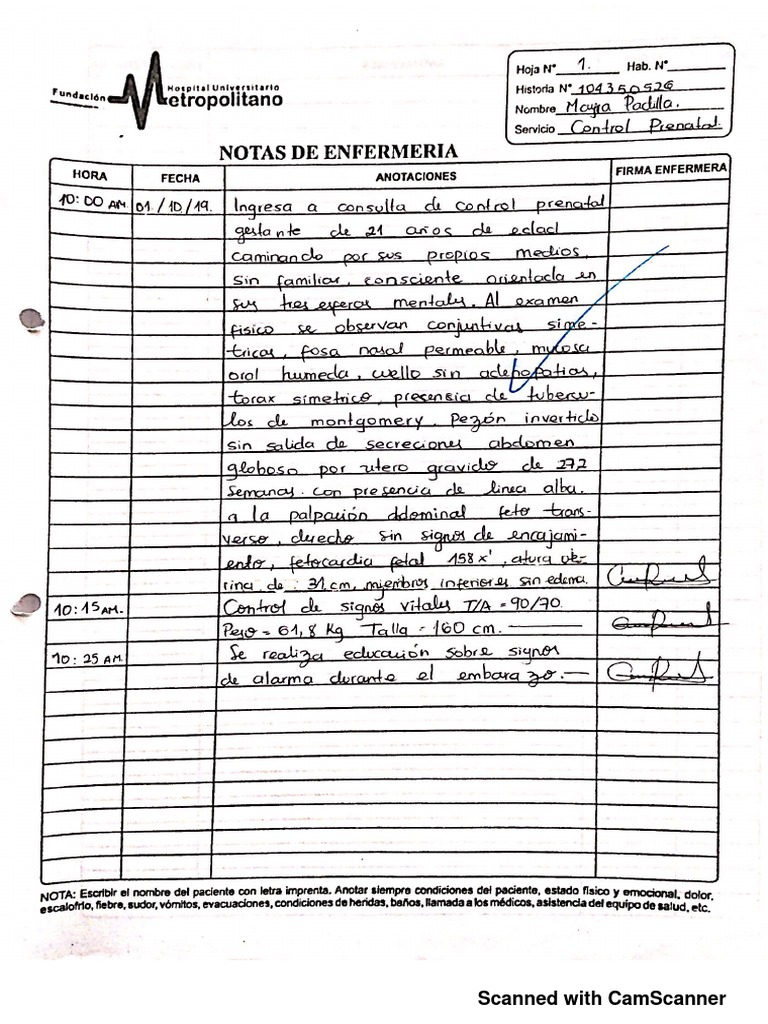 Fundación Hospital Universitario
Metropolitano
Hoja N° 1. Hab. N°
Historia N° 104350526
Nombre Mayra Padilla.
Servicio Control Prenatal.
NOTAS DE ENFERMERIA
HORA FECHA ANOTACIONES FIRMA ENFERMERA
10:00 AM. 01/10/19. Ingresa a consulta de control prenatal
gestante de 21 años de edad
caminando por sus propios medios,
sin familiar, consciente orientada en
sus tres esferas mentales. Al examen
fisico se observan conjuntivas sime-
tricas, fosa nasal permeable, mucosa
oral humeda, cuello sin adenopatias,
torax simetrico, presencia de tubercu-
los de montgomery. Pezón invertido
sin salida de secreciones abdomen
globoso por utero gravido de 27.2
semanas. con presencia de linea alba.
a la palpación abdominal feto trans-
verso, derecho sin signos de encajami-
ento, fetocardia fetal 158x', atura ute-
rina de: 31 cm, miembros inferiores sin edema.
10:15 AM. Control de signos vitales T/A = 90/70.
Peso = 61,8 Kg Talla = 160 cm.
10:25 AM. Se realiza educación sobre signos
de alarma durante el embarazo.
NOTA: Escribir el nombre del paciente con letra imprenta. Anotar siempre condiciones del paciente, estado físico y emocional, dolor,
escalofrío, fiebre, sudor, vómitos, evacuaciones, condiciones de heridas, baños, llamada a los médicos, asistencia del equipo de salud, etc.
Scanned with CamScanner